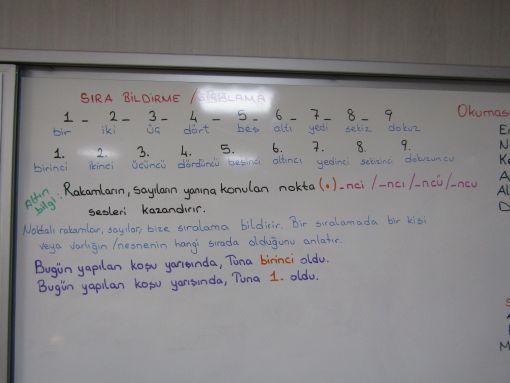 SIRA BİLDİRME / SIRALAMA
1 - 2 - 3 - 4 - 5 - 6 - 7 - 8 - 9
bir iki üç dört beş altı yedi sekiz dokuz
1. 2. 3. 4. 5. 6. 7. 8. 9.
birinci ikinci üçüncü dördüncü beşinci altıncı yedinci sekizinci dokuzuncu
Altın bilgi: Rakamların, sayıların yanına konulan nokta (.) -nci / -ncı / -ncü / -ncu
sesleri kazandırır.
Noktalı rakamlar, sayılar, bize sıralama bildirir. Bir sıralamada bir kişi
veya varlığın / nesnenin hangi sırada olduğunu anlatır.
Bugün yapılan koşu yarışında, Tuna birinci oldu.
Bugün yapılan koşu yarışında, Tuna 1. oldu.
Okuma